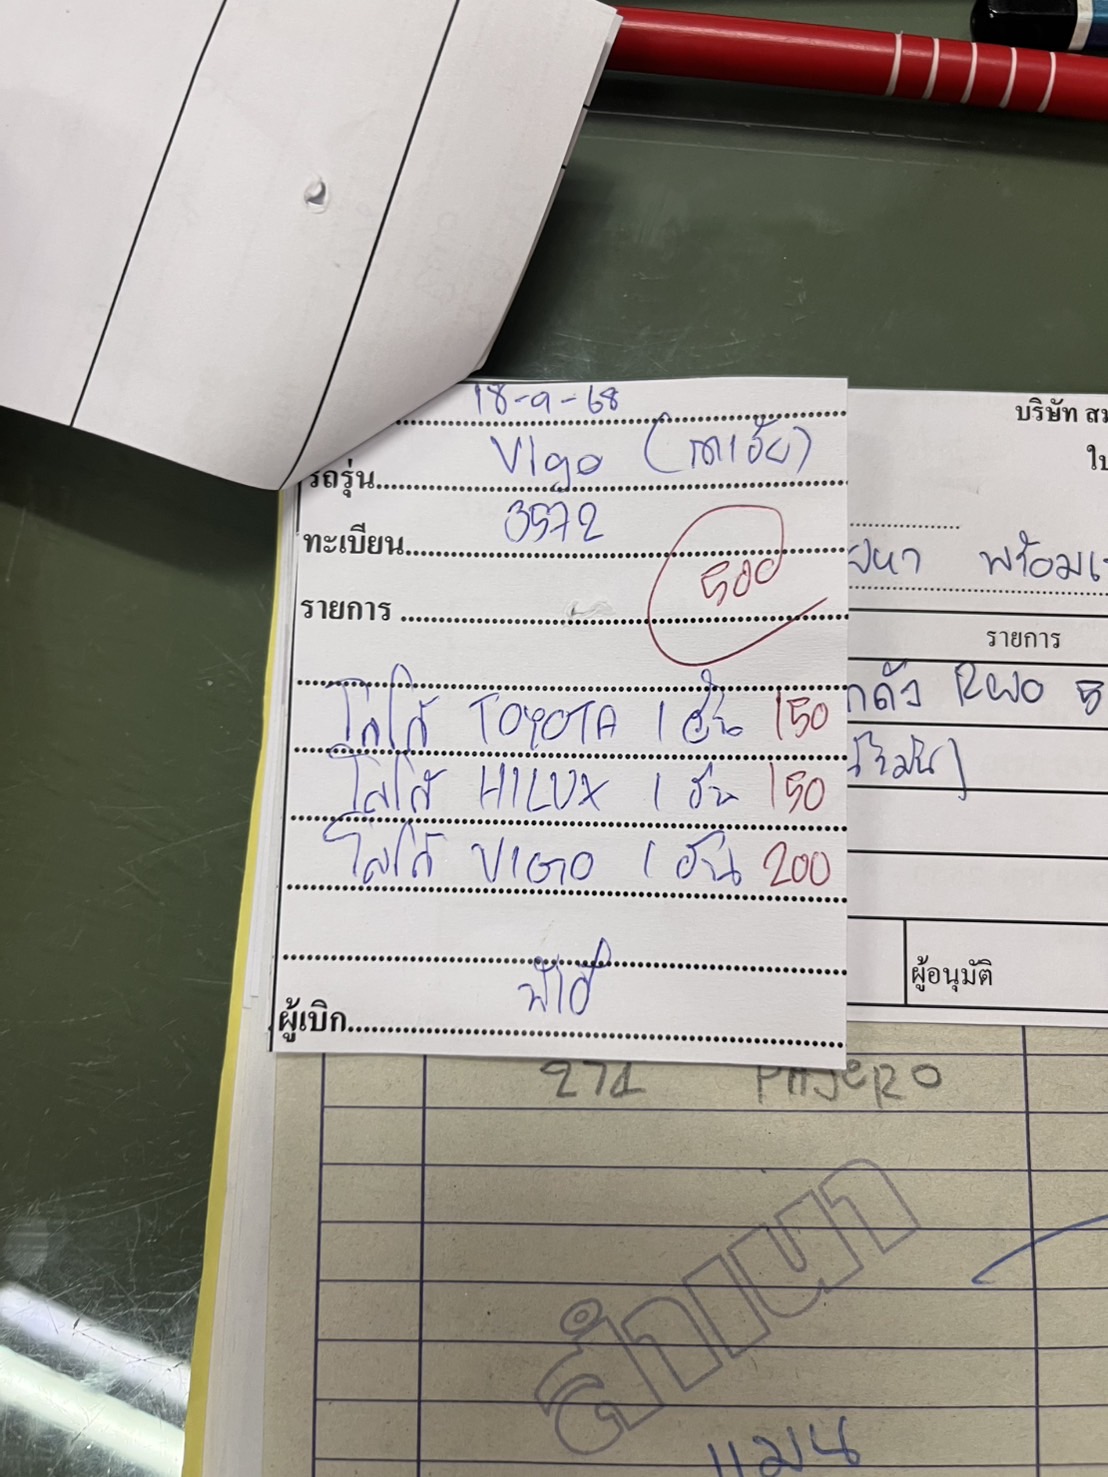 18-9-68
รถรุ่น Vigo
ทะเบียน 3572
รายการ
500
โลโก้ TOYOTA 1 อัน 150
โลโก้ HILUX 1 อัน 150
โลโก้ VIGO 1 อัน 200
ผู้เบิก
บริษัท
รายการ
ผู้อนุมัติ
271 PAJERO
สำเนา
แมน